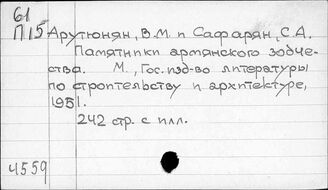 61
П15 Арутюнян, В.М. и Сафарян, С.А.
Памятники армянского зодче-
ства. М., Гос. изд-во литературы
по строительству и архитектуре,
1951.
242 стр. с илл.
4559